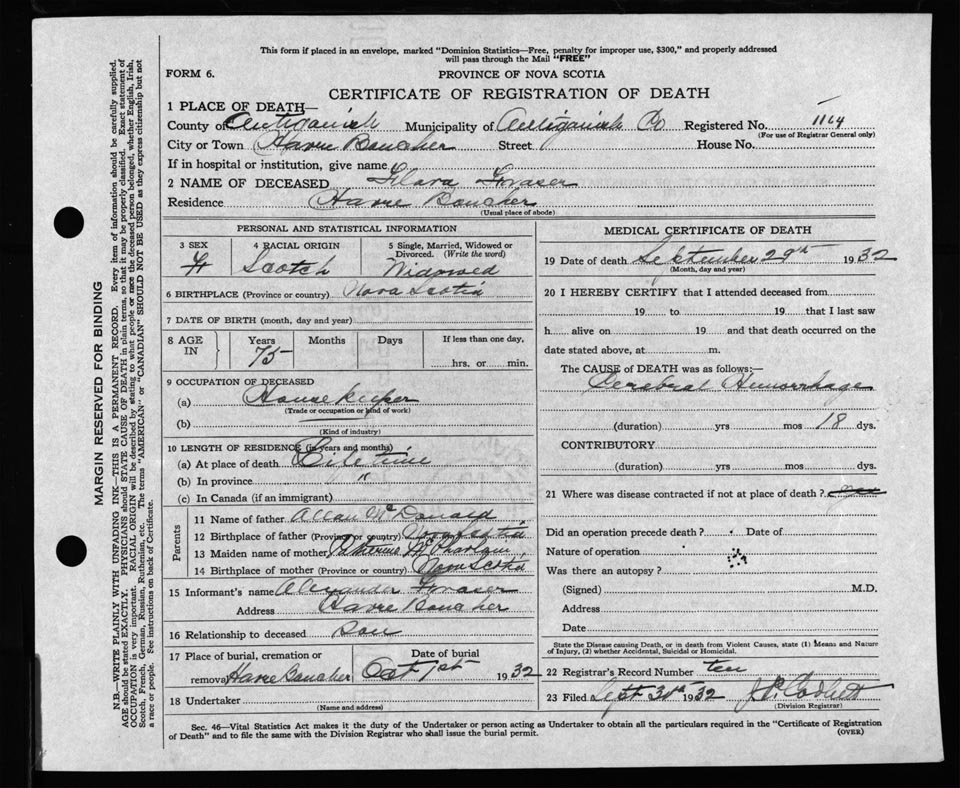 This form if placed in an envelope, marked "Dominion Statistics—Free, penalty for improper use, $300," and properly addressed
will pass through the Mail "FREE"
FORM 6.
PROVINCE OF NOVA SCOTIA
CERTIFICATE OF REGISTRATION OF DEATH
1 PLACE OF DEATH—
County of Antigonish Municipality of Antigonish Co Registered No. 1164
(For use of Registrar General only)
City or Town Havre Boucher Street House No.
If in hospital or institution, give name
2 NAME OF DECEASED Flora Fraser
Residence Havre Boucher
(Usual place of abode)
PERSONAL AND STATISTICAL INFORMATION
3 SEX 4 RACIAL ORIGIN 5 Single, Married, Widowed or
Divorced. (Write the word)
F Scotch Widowed
6 BIRTHPLACE (Province or country) Nova Scotia
7 DATE OF BIRTH (month, day and year)
8 AGE IN Years Months Days If less than one day,
75 hrs. or min.
9 OCCUPATION OF DECEASED
(a) Housekeeper
(Trade or occupation or kind of work)
(b)
(Kind of industry)
10 LENGTH OF RESIDENCE (in years and months)
(a) At place of death Life time
(b) In province "
(c) In Canada (if an immigrant)
Parents
11 Name of father Allan McDonald
12 Birthplace of father (Province or country) Nova Scotia
13 Maiden name of mother Catherine
14 Birthplace of mother (Province or country) Nova Scotia
15 Informant's name Alexander Fraser
Address Havre Boucher
16 Relationship to deceased Son
17 Place of burial, cremation or Date of burial
removal Havre Boucher Oct 1st 1932
18 Undertaker
(Name and address)
MEDICAL CERTIFICATE OF DEATH
19 Date of death September 29th 1932
(Month, day and year)
20 I HEREBY CERTIFY that I attended deceased from
19 to 19 that I last saw
h alive on 19 and that death occurred on the
date stated above, at m.
The CAUSE of DEATH was as follows:—
Cerebral Hemorrhage
(duration) yrs mos 18 dys.
CONTRIBUTORY
(duration) yrs. mos. dys.
21 Where was disease contracted if not at place of death?
Did an operation precede death? Date of
Nature of operation
Was there an autopsy?
(Signed) M.D.
Address
Date
State the Disease causing Death, or in Death from Violent Causes, state (1) Means and Nature
of Injury, (2) whether Accidental, Suicidal or Homicidal.
22 Registrar's Record Number ten
23 Filed Sept 30th 1932 J.P. Corbett
(Division Registrar)
Sec. 46—Vital Statistics Act makes it the duty of the Undertaker or person acting as Undertaker to obtain all the particulars required in the "Certificate of Registration
of Death" and to file the same with the Division Registrar who shall issue the burial permit.
(OVER)
MARGIN RESERVED FOR BINDING
N.B.—WRITE PLAINLY WITH UNFADING INK—THIS IS A PERMANENT RECORD. Every item of information should be carefully supplied.
AGE should be stated EXACTLY. PHYSICIANS should STATE CAUSE OF DEATH in plain terms, so that it may be properly classified. Exact statement of
OCCUPATION is very important. RACIAL ORIGIN will be described by stating to what people or race the deceased person belonged, whether English, Irish,
Scotch, French, German, Russian, Ruthenian, etc. The terms "AMERICAN" or "CANADIAN" SHOULD NOT BE USED as they express citizenship but not
a race or people. See instructions on back of Certificate.